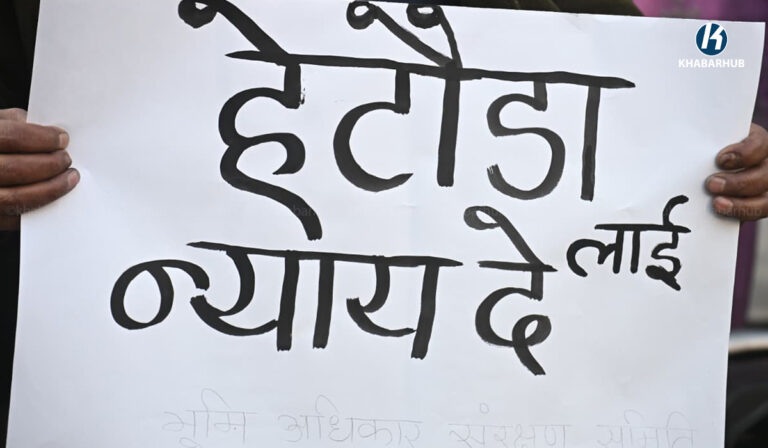 KHABARHUB
हेटौडा
लाई
न्याय दे
भूमि अधिकार संरक्षण समिति